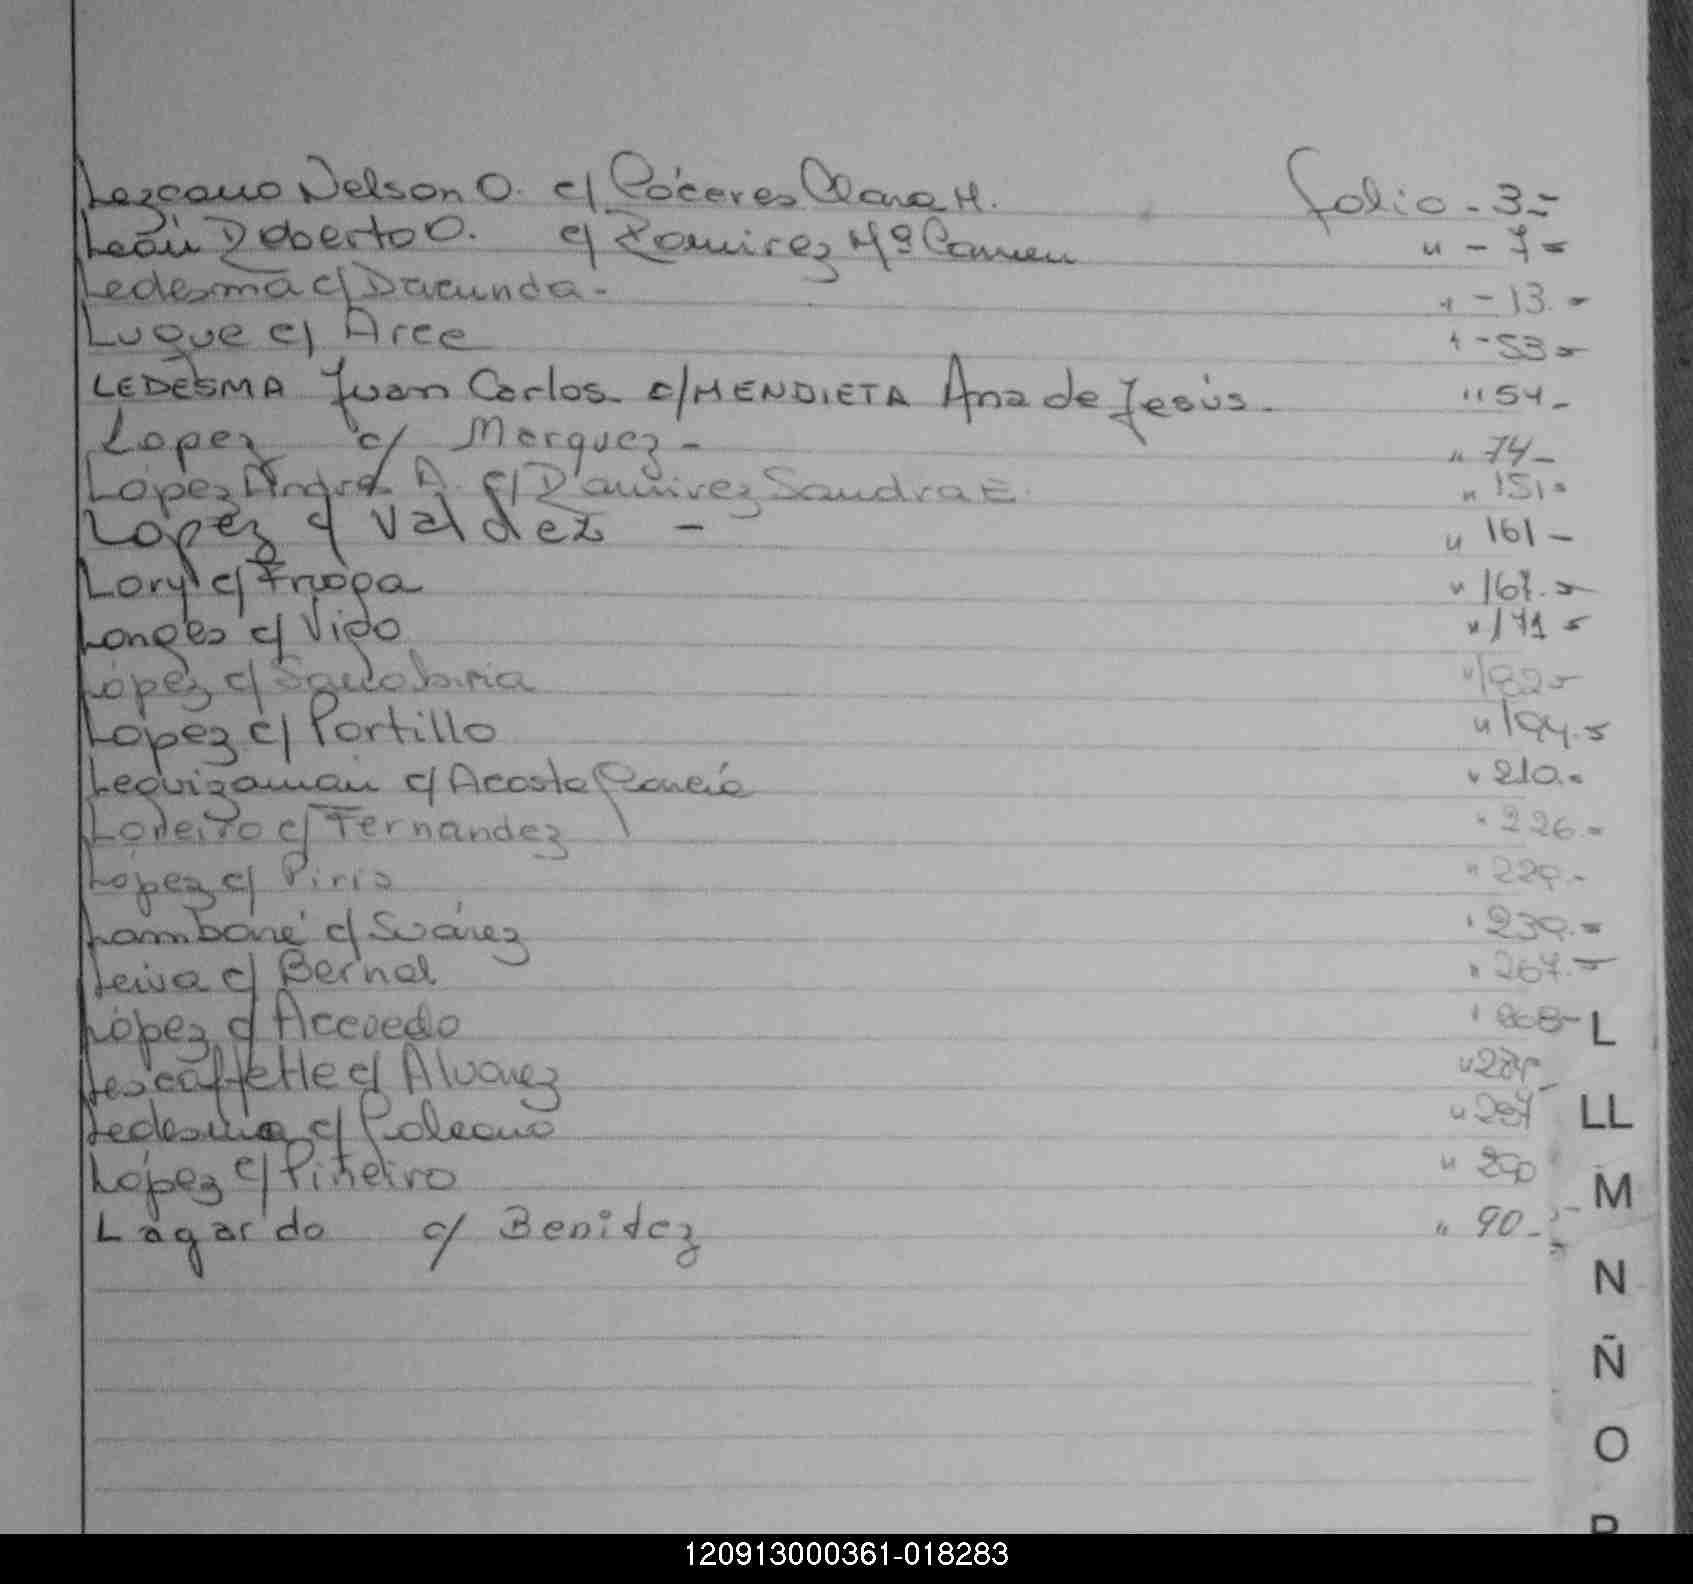 Lezcano Nelson O. c/ Cáceres Clara H. folio - 3 =
León Roberto O. c/ Ramirez Mª Carmen " - 7 =
Ledesma c/ Dacunda - " - 13. =
Luque c/ Arce " - 53 =
LEDESMA Juan Carlos - c/ MENDIETA Ana de Jesús - " 54 -
Lopez c/ Marquez - " 74 -
López Andrés A. c/ Ramirez Sandra E. " 151 =
Lopez c/ Valdez - " 161 -
Lory c/ " 167. =
Longes c/ Vigo " 171 =
López c/ " 182 =
Lopez c/ Portillo " 194. =
Leguizamón c/ Acosta García " 210. =
Loreiro c/ Fernandez " 226. =
López c/ Piris " 229. -
Lambaré c/ Suárez " 239. =
Leiva c/ Bernal " 267. =
López c/ Acevedo " 268 -
c/ Alvarez "
Ledesma c/ " 287
López c/ Piñeiro " 290
Lagardo c/ Benidez " 90 -
L
LL
M
N
Ñ
O
P
120913000361-018283